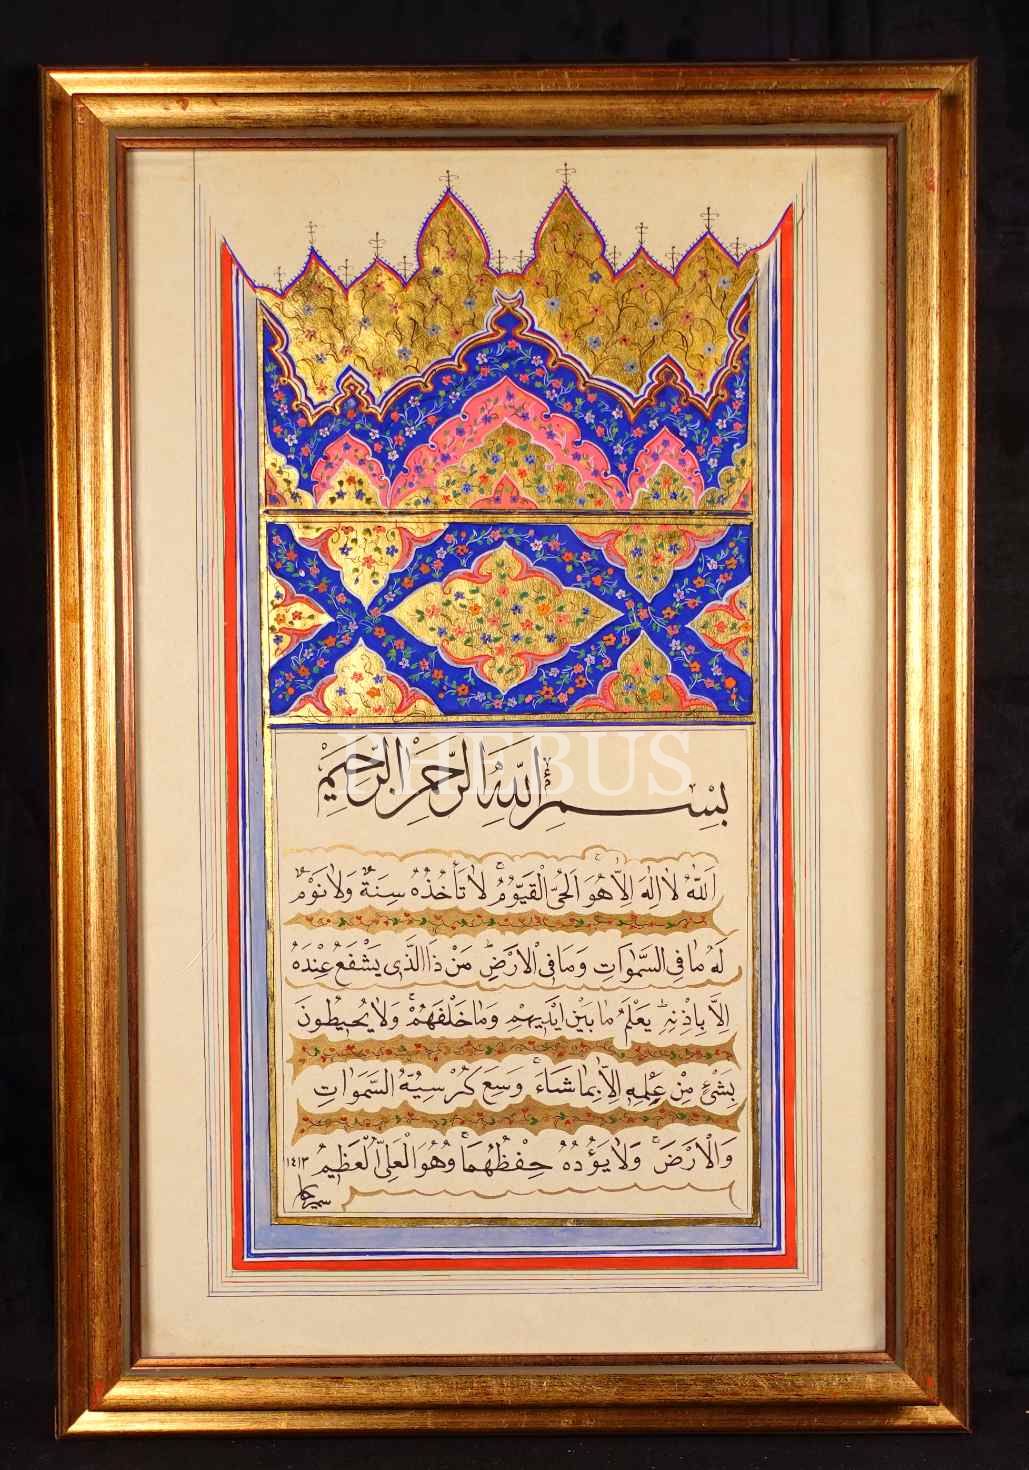 PHEBUS
بِسْمِ اللّٰهِ الرَّحْمٰنِ الرَّحِيْمِ
اَللّٰهُ لَا اِلٰهَ اِلَّا هُوَ اَلْحَىُّ الْقَيُّومُ لَا تَأْخُذُهُ سِنَةٌ وَلَا نَوْمٌ
لَهُ مَا فِى السَّمٰوَاتِ وَمَا فِى الْاَرْضِ مَنْ ذَا الَّذِى يَشْفَعُ عِنْدَهُ
اِلَّا بِاِذْنِهِ يَعْلَمُ مَا بَيْنَ اَيْدِيهِمْ وَمَا خَلْفَهُمْ وَلَا يُحِيطُونَ
بِشَىْءٍ مِنْ عِلْمِهِ اِلَّا بِمَا شَاءَ وَسِعَ كُرْسِيُّهُ السَّمَوَاتِ
وَالْاَرْضَ وَلَا يَؤُدُهُ حِفْظُهُمَا وَهُوَ الْعَلِىُّ الْعَظِيمُ
١٤١٣